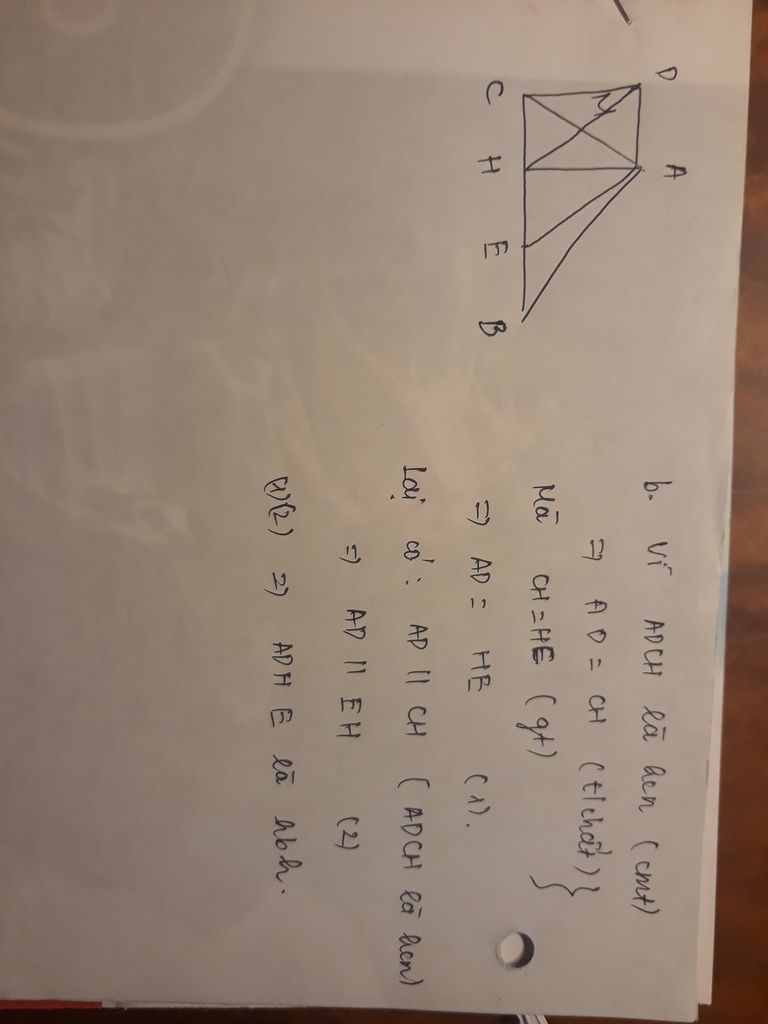 D
A
M
C
H
E
B
b. Vì ADCH là hcn (cmt)
=> AD = CH (t/chất) }
Mà CH = HE (gt) }
=> AD = HE (1).
Lại có: AD // CH (ADCH là hcn)
=> AD // EH (2)
(1)(2) => ADHE là hbh.